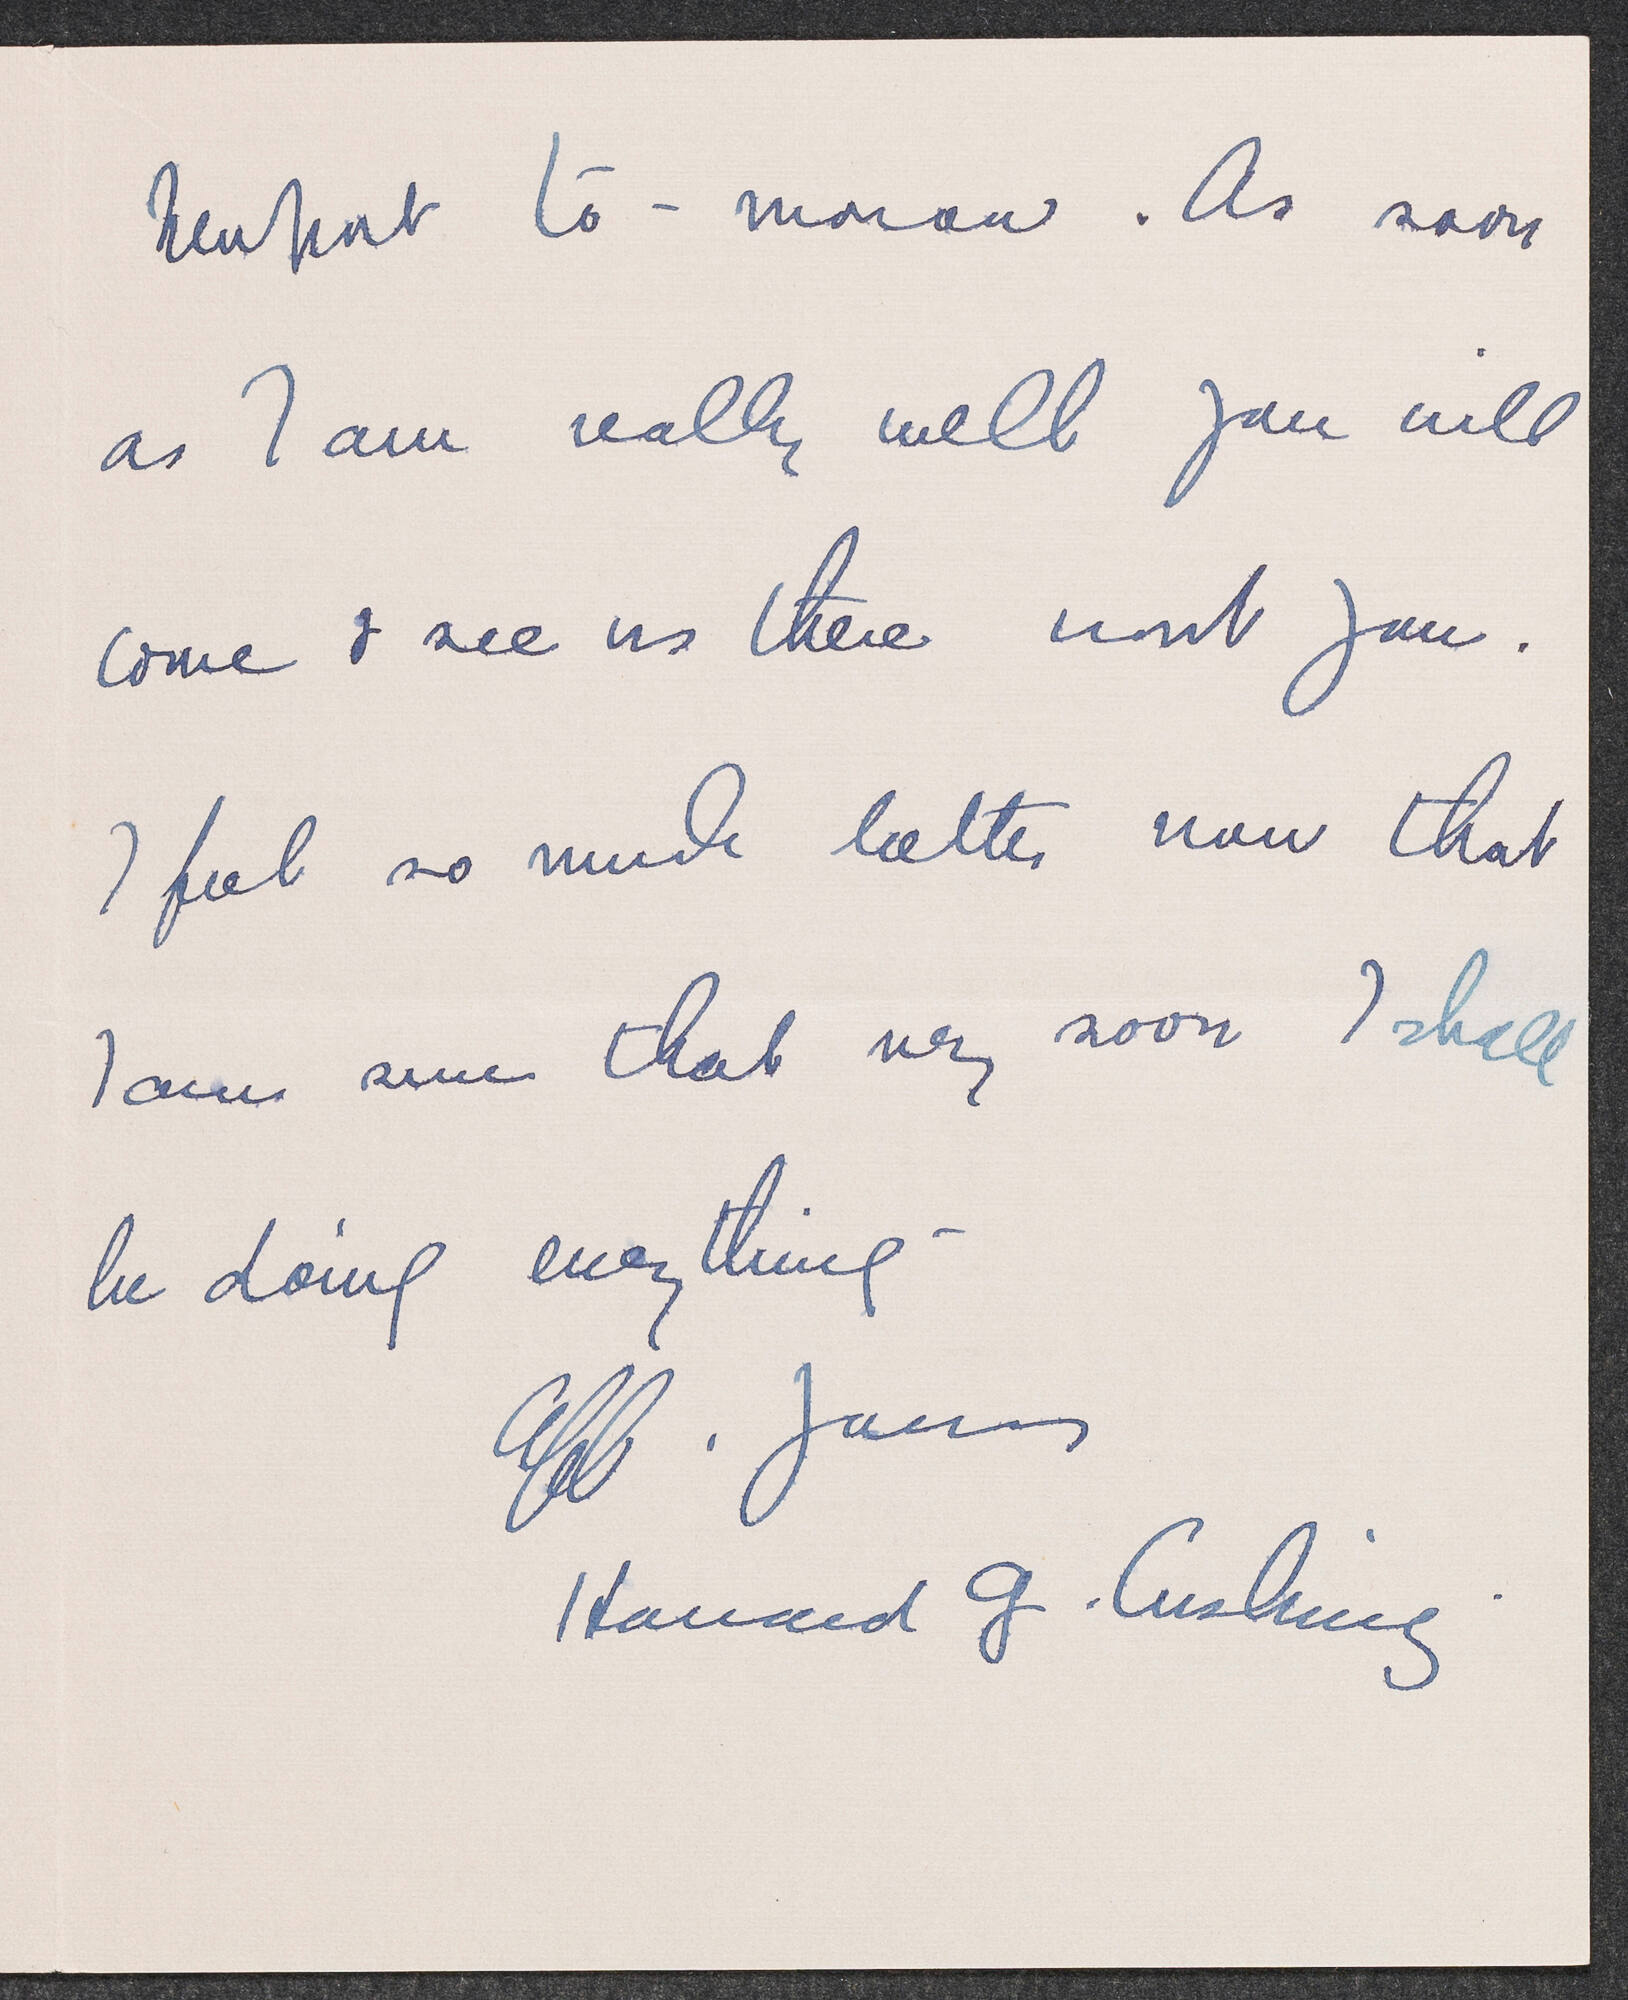 Newport to-morow. As soon
as I am really well you will
come & see us there wont you.
I feel so much better now that
I am sure that very soon I shall
be doing everything -
Aff. yours
Howard G. Cushing.